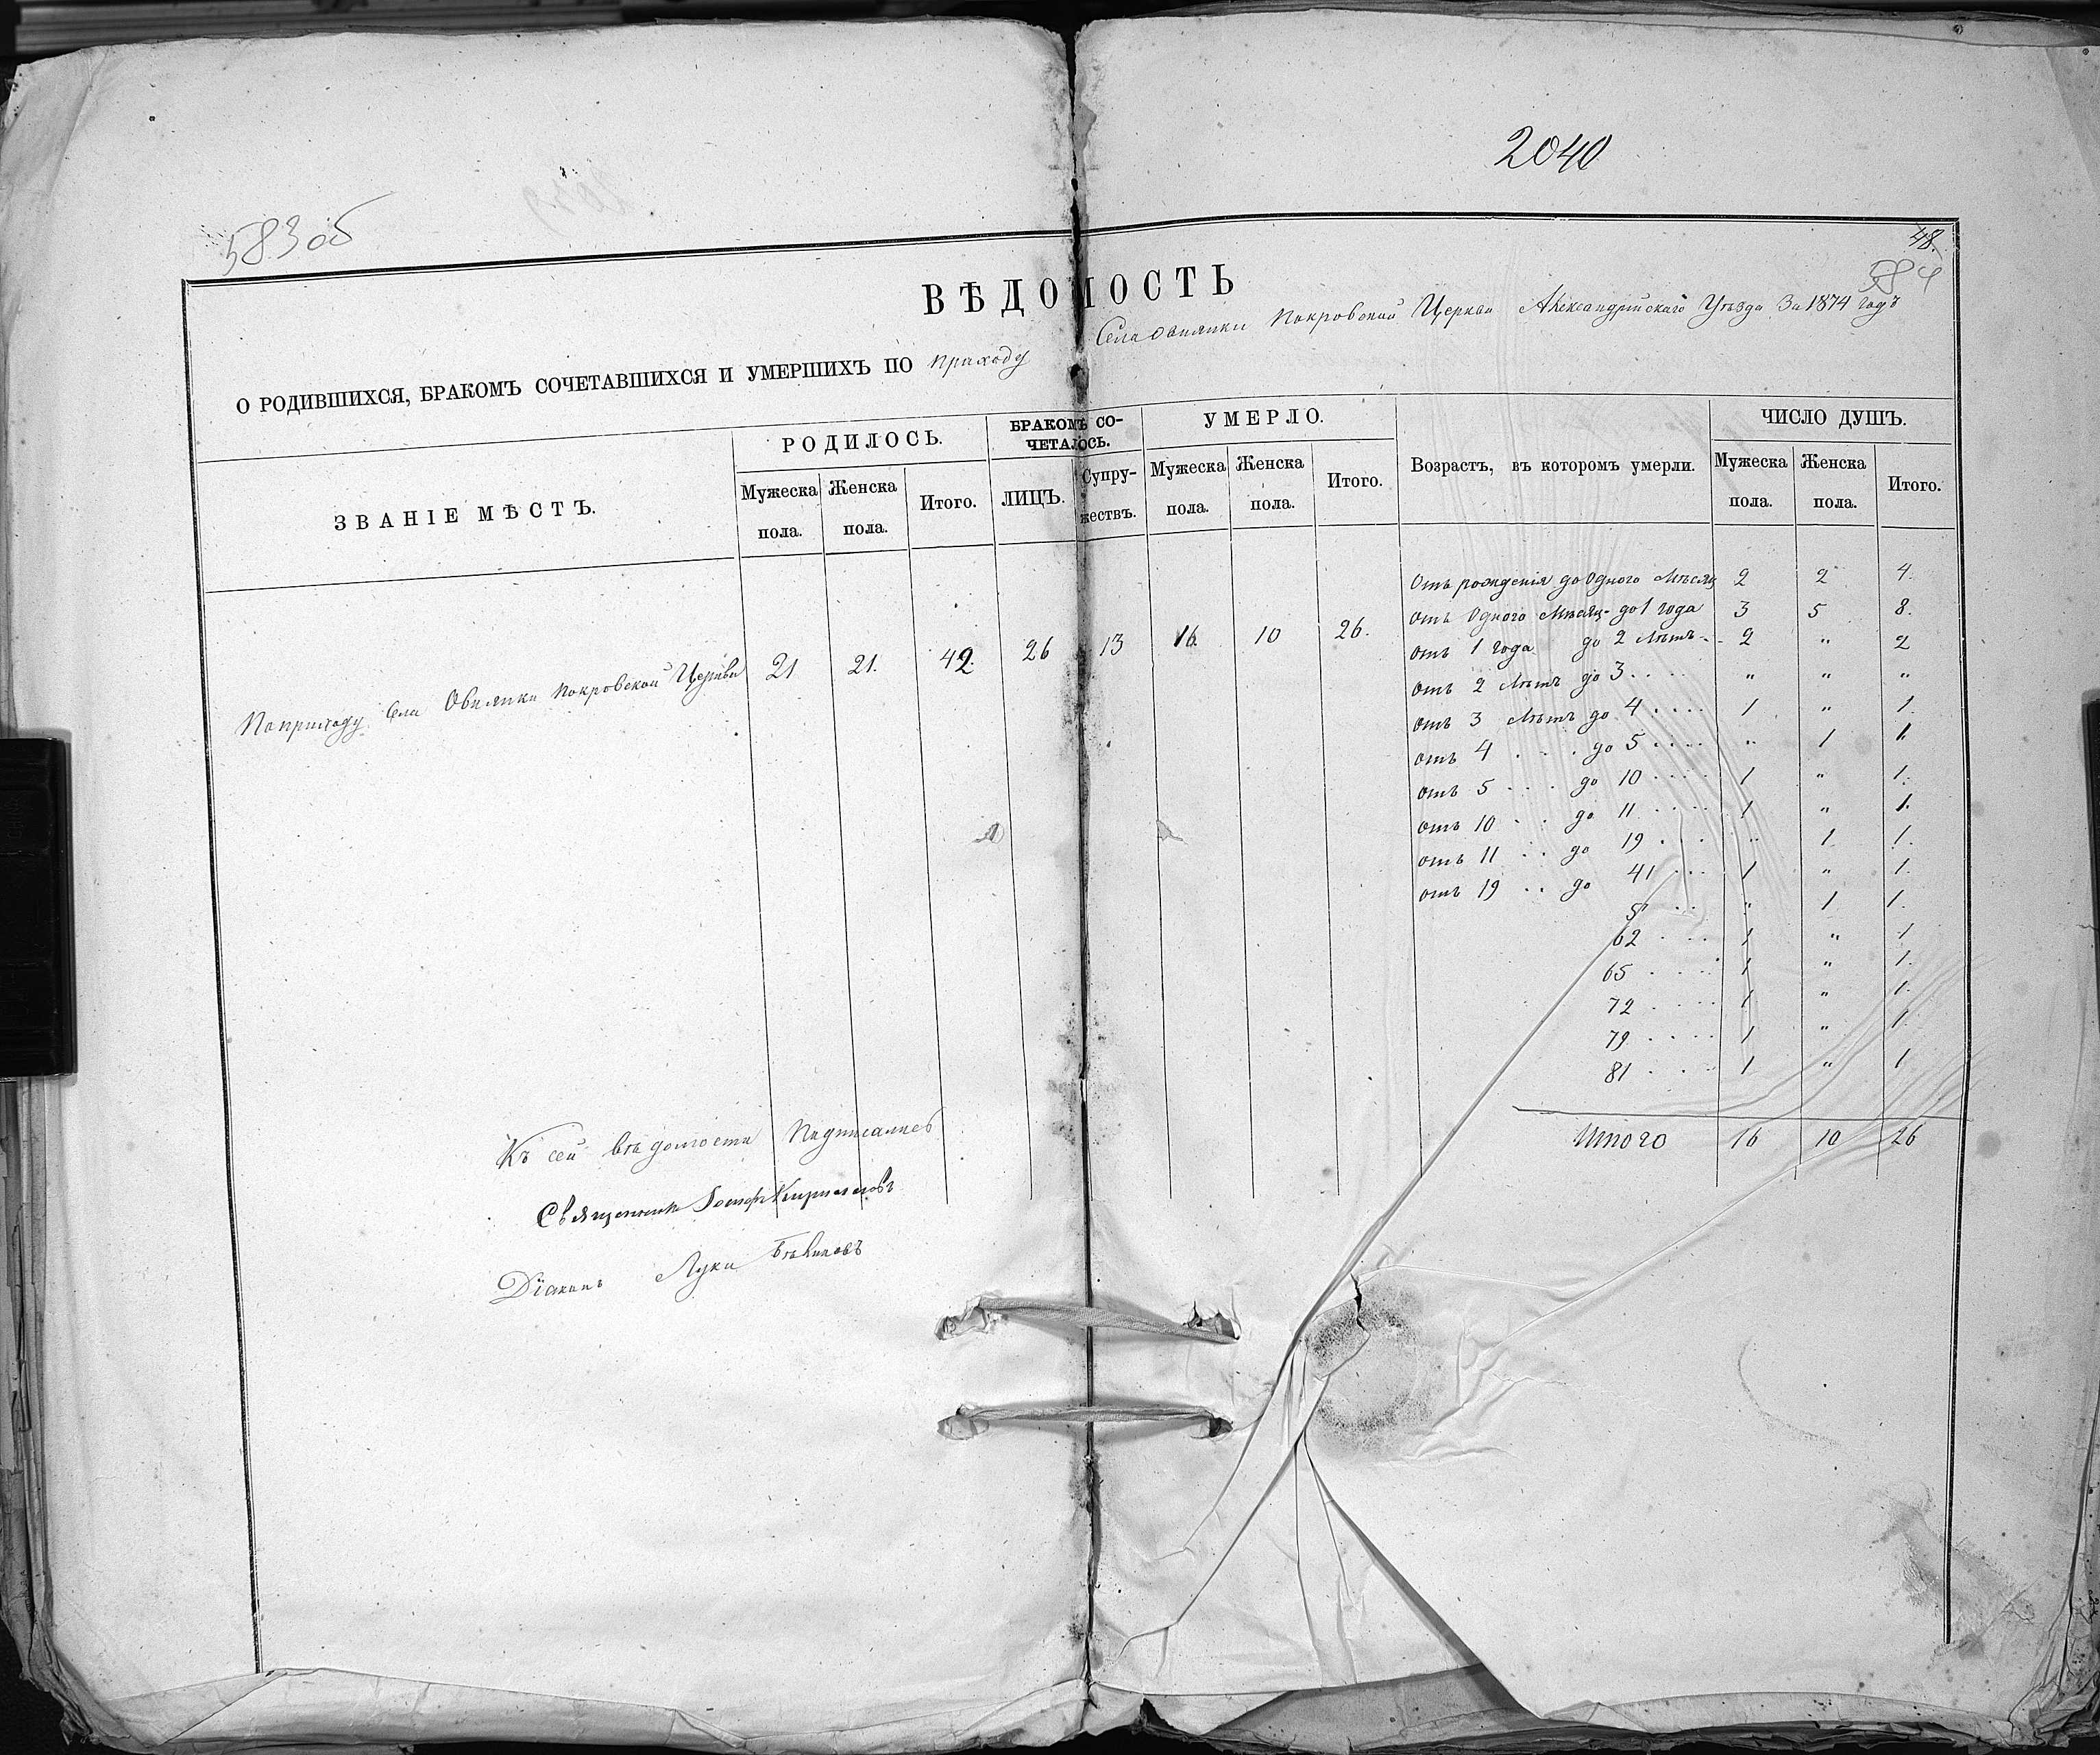 2040
583 об
48.
584
ВѢДОМОСТЬ
О РОДИВШИХСЯ, БРАКОМЪ СОЧЕТАВШИХСЯ И УМЕРШИХЪ ПО приходу Села Овнянки Покровской Церкви Александрійскаго Уѣзда За 1874 годъ
ЗВАНІЕ МѢСТЪ. РОДИЛОСЬ. БРАКОМЪ СОЧЕТАЛОСЬ. УМЕРЛО. Возрастъ, въ которомъ умерли. ЧИСЛО ДУШЪ.
Мужеска пола. Женска пола. Итого. ЛИЦЪ. Супружествъ. Мужеска пола. Женска пола. Итого. Мужеска пола. Женска пола. Итого.
По приходу Села Овнянки Покровской Церкви 21 21. 42. 26 13 16. 10 26.
Отъ рожденія до Одного Мѣсяц 2 2 4.
отъ Одного Мѣсяц- до 1 года 3 5 8.
отъ 1 года до 2 лѣтъ - - 2 " 2
отъ 2 лѣтъ до 3 . . . . " " "
отъ 3 лѣтъ до 4 . . . . 1 " 1.
отъ 4 . . . до 5 . . . . " 1 1.
отъ 5 . . . до 10 . . . . 1 " 1.
отъ 10 . . до 11 . . . . 1 " 1.
отъ 11 . . до 19 . . . " 1 1.
отъ 19 . . до 41 . . . 1 " 1.
" 1 1.
62 . . . 1 " 1
65 . . . . 1 " 1.
72 . . . . 1 " 1.
79 . . . . 1 " 1.
81 . . . 1 " 1
Итого 16 10 26
Къ сей вѣдомости Подписались
Священникъ Іосифъ
Діаконъ Лука